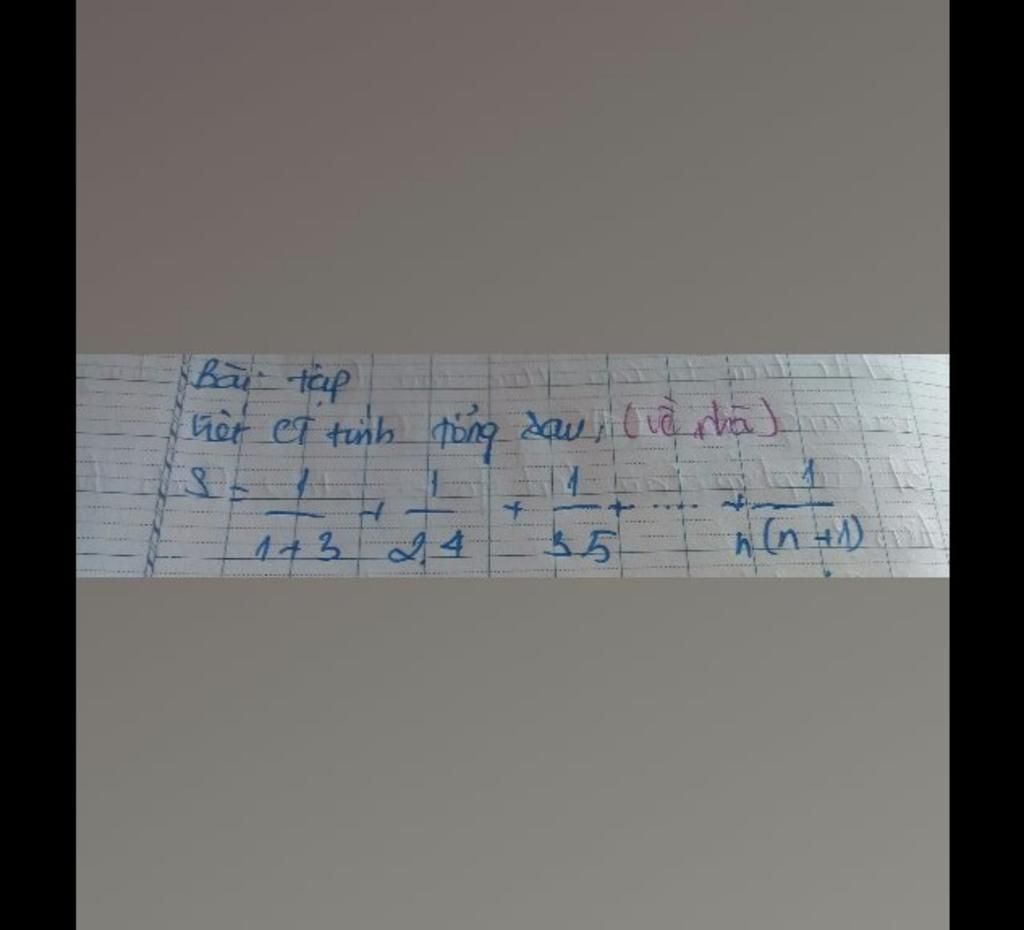 Bài tập
Viết CT tính tổng sau, (về nhà)
S = 1/1+3 + 1/2.4 + 1/3.5 + .... + 1/n(n+1)